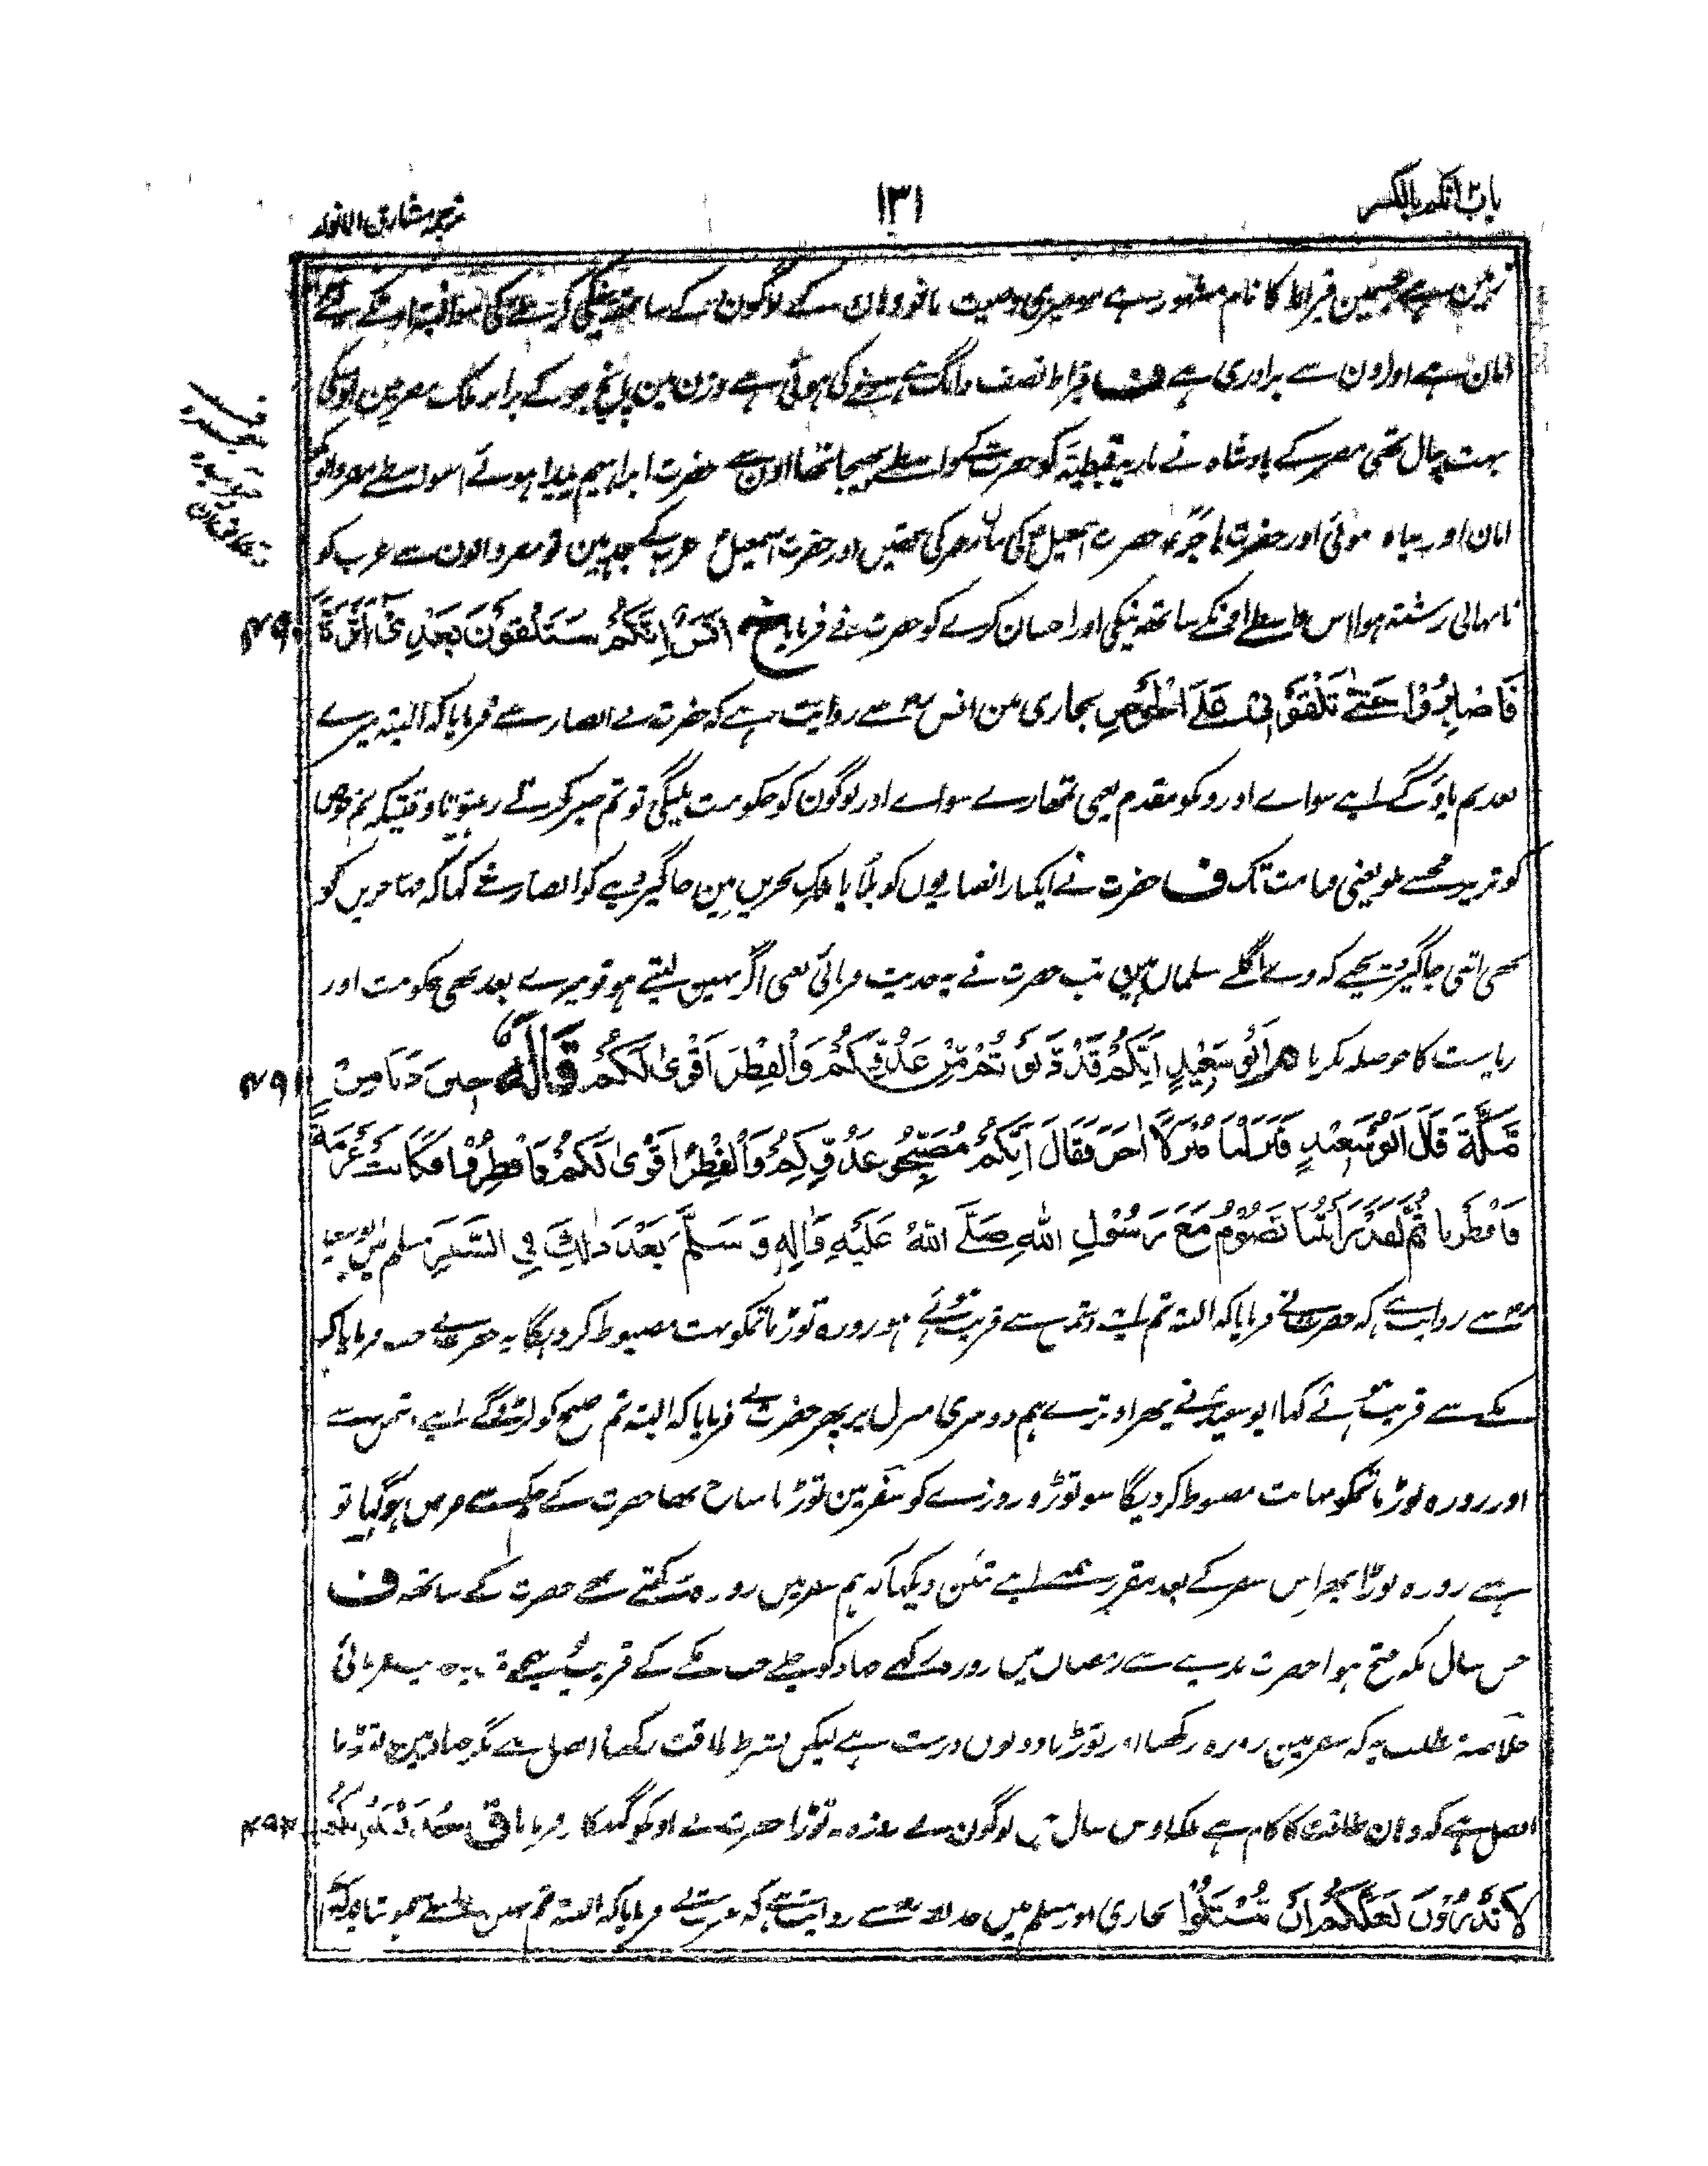 باب انکم بالکسر
١٣١
ترجمہ مشارق الانوار
زمین ہے جسمین قیراط کا نام مشہور ہے سو میری وصیت مانو وہان کے لوگون کے ساتھ نیکی کرنے کی اسواسطے
امان ہے اور اون سے برادری ہے ف قیراط نصف دانگ ہے سونے کی ہوتی ہے وزن مین پانچ جو کے برابر ملک مصر مین اوسکی
بہت چال تھی مصر کے بادشاہ نے ماریہ قبطیہ کو حضرت کے واسطے بھیجا تھا اون سے حضرت ابراہیم پیدا ہوئے اسواسطے مصر والونکو
امان اور پناہ ہوئی اور حضرت ہاجرہ حضرت اسمعیل کی ما مصر کی تھیں اور حضرت اسمعیل عرب کے جد ہین تو مصر والون سے عرب کو
نانہالی رشتہ ہوا اس واسطے اونکے ساتھ نیکی اور احسان کرنے کو حضرت نے فرمایا خ اَنَسٌ اِنَّكُمْ سَتَلْقَوْنَ بَعْدِيْ اَثَرَةً
٤٩٠
فَاصْبِرُوْا حَتّٰى تَلْقَوْنِيْ عَلَى الْحَوْضِ بخاری مین انس سے روایت ہے کہ حضرت نے انصار سے فرمایا کہ البتہ میرے
بعد تم پاؤگے اپنے سواے اورونکو مقدم یعنی تمھارے سواے اور لوگون کو حکومت ملیگی تو تم صبر کرتے رہیو تاوقتیکہ تم حوض
کوثر پر مجھسے ملو یعنی قیامت تک ف حضرت نے ایکبار انصاریوں کو بلایا ملک بحرین مین جاگیر دینے کو انصار نے کہا کہ مہاجرین کو
بھی اتنی جاگیر دیجیے کہ وے اگلے مسلمان ہین تب حضرت نے یہ حدیث فرمائی یعنی اگر نہین لیتے ہو تو میرے بعد بھی حکومت اور
ریاست کا حوصلہ نکریا م اَبُوْ سَعِيْدٍ اِنَّكُمْ قَدْ دَنَوْتُمْ مِّنْ عَدُوِّكُمْ وَالْفِطْرُ اَقْوٰى لَكُمْ قَالَهٗ حِيْنَ دَنَا مِنْ
٤٩١
مَّكَّةَ قَالَ اَبُوْ سَعِيْدٍ فَنَزَلْنَا مَنْزِلًا اٰخَرَ فَقَالَ اِنَّكُمْ مُصَبِّحُوْ عَدُوِّكُمْ وَالْفِطْرُ اَقْوٰى لَكُمْ فَافْطِرُوْا فَكَانَتْ عَزْمَةً
فَافْطَرْنَا ثُمَّ لَقَدْ رَاَيْتُنَا نَصُوْمُ مَعَ رَسُوْلِ اللهِ صَلَّى اللهُ عَلَيْهِ وَاٰلِهٖ وَسَلَّمَ بَعْدَ ذٰلِكَ فِي السَّفَرِ مسلم مین ابو سعید
سے روایت ہے کہ حضرت نے فرمایا کہ البتہ تم اپنے دشمن سے قریب ہوئے ہو اور روزہ توڑنا تمکو بہت مضبوط کر دیگا یہ حضرت نے جب فرمایا کہ
مکے سے قریب آئے کہا ابو سعید نے پھر اوترے ہم دوسری منزل پر پھر حضرت نے فرمایا کہ البتہ تم صبح کو لڑوگے اپنے دشمن سے
اور روزہ توڑنا تمکو نہایت مضبوط کردیگا سو توڑو روزے کو سفر مین توڑنا مباح تھا حضرت کے حکم سے فرض ہوگیا تو
ہمنے روزہ توڑا پھر اس سفر کے بعد مقرر ہمنے اپنے تئین دیکھا کہ ہم سفر مین روزہ رکھتے تھے حضرت کے ساتھ ف
جس سال مکہ فتح ہوا حضرت مدینے سے رمضان میں روزہ رکھے جہاد کو چلے جب مکے کے قریب پہنچے تب یہ حدیث فرمائی
خلاصہ مطلب یہ کہ سفر مین روزہ رکھنا اور توڑنا دونوں درست ہے لیکن بشرط طاقت رکھنا افضل ہے مگر جہاد مین توڑنا
افضل ہے کہ وہان طاقت کا کام ہے بلکہ اوس سال جن لوگون نے روزہ نہ توڑا حضرت نے اونکو گنہگار فرمایا ق حُذَيْفَةُ اِنَّكُمْ
٤٩٢
لَا تَدْرُوْنَ لَعَلَّكُمْ اَنْ تُبْتَلَوْا بخاری اور مسلم مین حذیفہ سے روایت ہے کہ حضرت نے فرمایا کہ البتہ تم نہین جانتے ہو شاید کہ